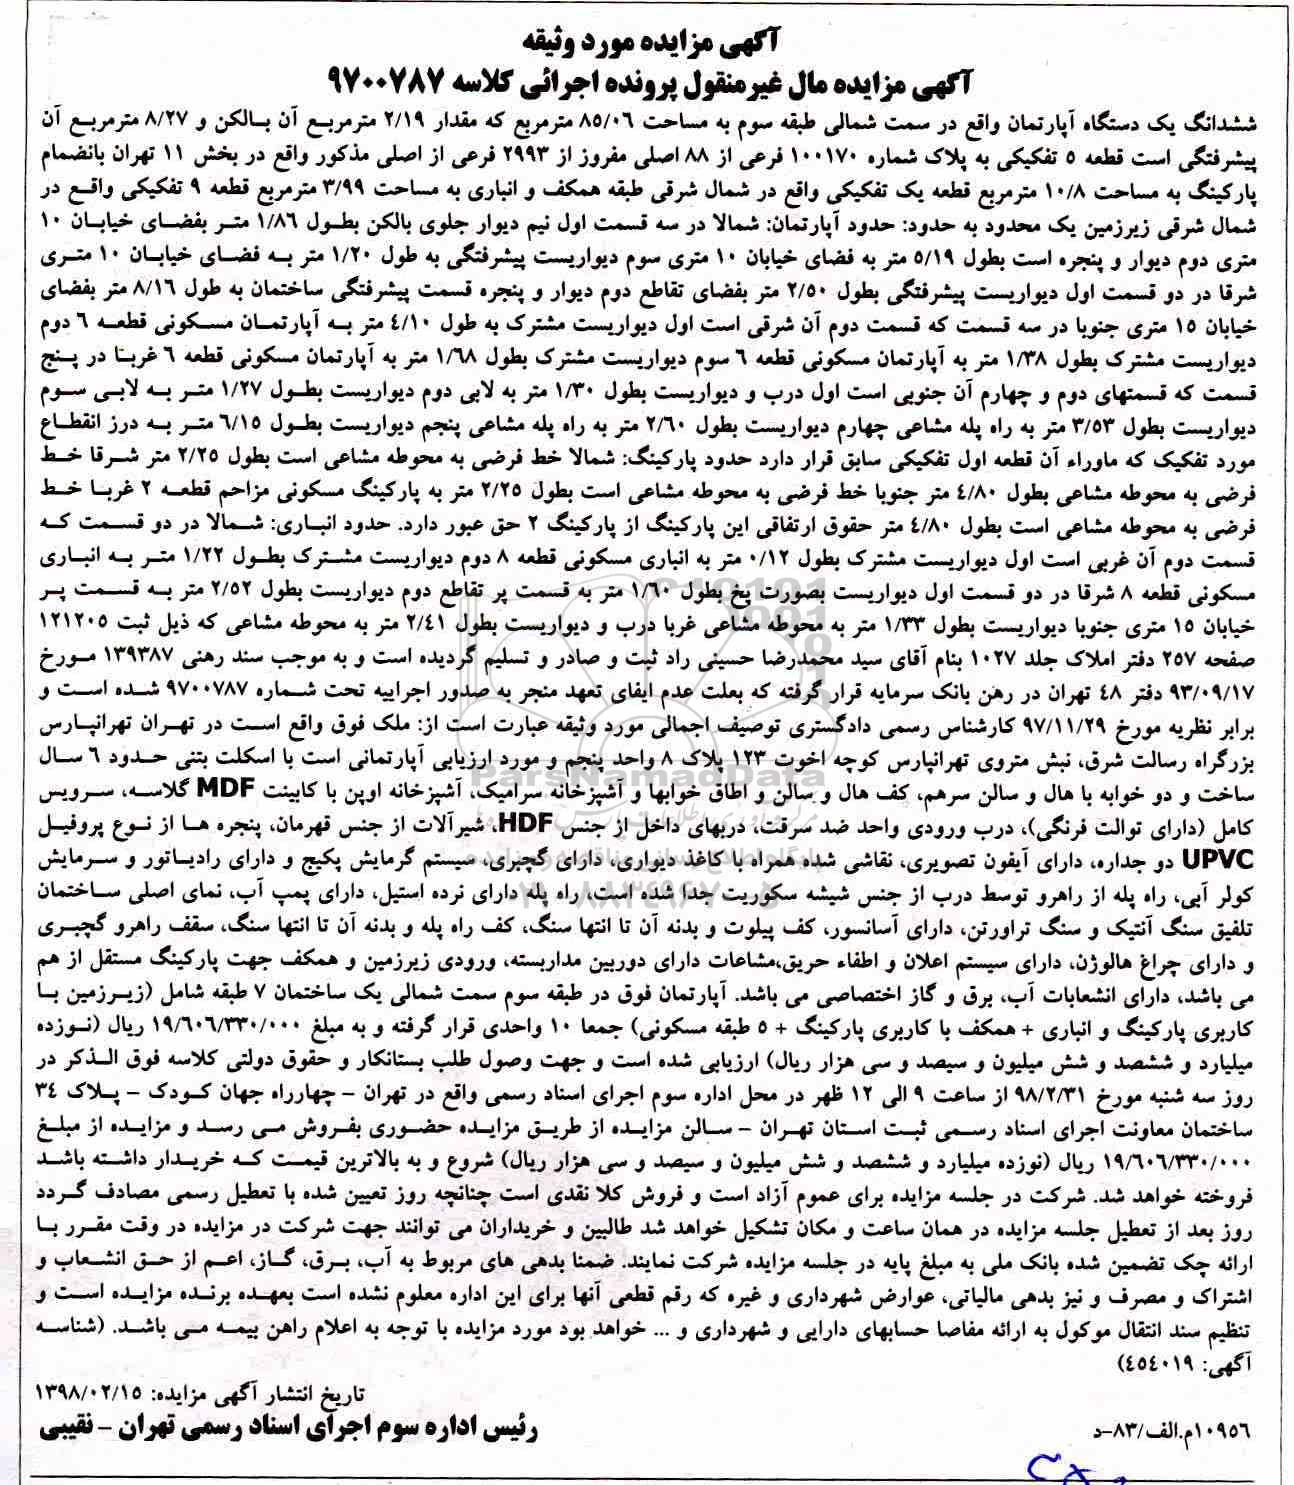 آگهی مزایده مورد وثیقه
آگهی مزایده مال غیرمنقول پرونده اجرائی کلاسه ۹۷۰۰۷۸۷
ششدانگ یک دستگاه آپارتمان واقع در سمت شمالی طبقه سوم به مساحت ۸۵/۰۶ مترمربع که مقدار ۲/۱۹ مترمربع آن بالکن و ۸/۲۷ مترمربع آن
پیشرفتگی است قطعه ۵ تفکیکی به پلاک شماره ۱۰۰۱۷۰ فرعی از ۸۸ اصلی مفروز از ۲۹۹۳ فرعی از اصلی مذکور واقع در بخش ۱۱ تهران بانضمام
پارکینگ به مساحت ۱۰/۸ مترمربع قطعه یک تفکیکی واقع در شمال شرقی طبقه همکف و انباری به مساحت ۳/۹۹ مترمربع قطعه ۹ تفکیکی واقع در
شمال شرقی زیرزمین یک محدود به حدود: حدود آپارتمان: شمالا در سه قسمت اول نیم دیوار جلوی بالکن بطول ۱/۸۶ متر بفضای خیابان ۱۰
متری دوم دیوار و پنجره است بطول ۵/۱۹ متر به فضای خیابان ۱۰ متری سوم دیواریست پیشرفتگی به طول ۱/۲۰ متر به فضای خیابان ۱۰ متری
شرقا در دو قسمت اول دیواریست پیشرفتگی بطول ۲/۵۰ متر بفضای تقاطع دوم دیوار و پنجره قسمت پیشرفتگی ساختمان به طول ۸/۱۶ متر بفضای
خیابان ۱۵ متری جنوبا در سه قسمت که قسمت دوم آن شرقی است اول دیواریست مشترک به طول ۴/۱۰ متر به آپارتمان مسکونی قطعه ۶ دوم
دیواریست مشترک بطول ۱/۳۸ متر به آپارتمان مسکونی قطعه ۶ سوم دیواریست مشترک بطول ۱/۶۸ متر به آپارتمان مسکونی قطعه ۶ غربا در پنج
قسمت که قسمتهای دوم و چهارم آن جنوبی است اول درب و دیواریست بطول ۱/۳۰ متر به لابی دوم دیواریست بطول ۱/۲۷ متر به لابی سوم
دیواریست بطول ۳/۵۳ متر به راه پله مشاعی چهارم دیواریست بطول ۲/۶۰ متر به راه پله مشاعی پنجم دیواریست بطول ۶/۱۵ متر به درز انقطاع
مورد تفکیک که ماوراء آن قطعه اول تفکیکی سابق قرار دارد حدود پارکینگ: شمالا خط فرضی به محوطه مشاعی است بطول ۲/۲۵ متر شرقا خط
فرضی به محوطه مشاعی بطول ۴/۸۰ متر جنوبا خط فرضی به محوطه مشاعی است بطول ۲/۲۵ متر به پارکینگ مسکونی مزاحم قطعه ۲ غربا خط
فرضی به محوطه مشاعی است بطول ۴/۸۰ متر حقوق ارتفاقی این پارکینگ از پارکینگ ۲ حق عبور دارد. حدود انباری: شمالا در دو قسمت که
قسمت دوم آن غربی است اول دیواریست مشترک بطول ۰/۱۲ متر به انباری مسکونی قطعه ۸ دوم دیواریست مشترک بطول ۱/۲۲ متر به انباری
مسکونی قطعه ۸ شرقا در دو قسمت اول دیواریست بصورت پخ بطول ۱/۶۰ متر به قسمت پر تقاطع دوم دیواریست بطول ۲/۵۲ متر به قسمت پر
خیابان ۱۵ متری جنوبا دیواریست بطول ۱/۳۳ متر به محوطه مشاعی غربا درب و دیواریست بطول ۲/۴۱ متر به محوطه مشاعی که ذیل ثبت ۱۲۱۲۰۵
صفحه ۲۵۷ دفتر املاک جلد ۱۰۲۷ بنام آقای سید محمدرضا حسینی راد ثبت و صادر و تسلیم گردیده است و به موجب سند رهنی ۱۳۹۳۸۷ مورخ
۹۳/۰۹/۱۷ دفتر ۴۸ تهران در رهن بانک سرمایه قرار گرفته که بعلت عدم ایفای تعهد منجر به صدور اجراییه تحت شماره ۹۷۰۰۷۸۷ شده است و
برابر نظریه مورخ ۹۷/۱۱/۲۹ کارشناس رسمی دادگستری توصیف اجمالی مورد وثیقه عبارت است از: ملک فوق واقع است در تهران تهرانپارس
بزرگراه رسالت شرق، نبش متروی تهرانپارس کوچه اخوت ۱۲۳ پلاک ۸ واحد پنجم و مورد ارزیابی آپارتمانی است با اسکلت بتنی حدود ۶ سال
ساخت و دو خوابه با هال و سالن سرهم، کف هال و سالن و اطاق خوابها و آشپزخانه سرامیک، آشپزخانه اوپن با کابینت MDF گلاسه، سرویس
کامل (دارای توالت فرنگی)، درب ورودی واحد ضد سرقت، دربهای داخل از جنس HDF، شیرآلات از جنس قهرمان، پنجره ها از نوع پروفیل
UPVC دو جداره، دارای آیفون تصویری، نقاشی شده همراه با کاغذ دیواری، دارای گچبری، سیستم گرمایش پکیج و دارای رادیاتور و سرمایش
کولر آبی، راه پله از راهرو توسط درب از جنس شیشه سکوریت جدا شده است، راه پله دارای نرده استیل، دارای پمپ آب، نمای اصلی ساختمان
تلفیق سنگ آنتیک و سنگ تراورتن، دارای آسانسور، کف پیلوت و بدنه آن تا انتها سنگ، کف راه پله و بدنه آن تا انتها سنگ، سقف راهرو گچبری
و دارای چراغ هالوژن، دارای سیستم اعلان و اطفاء حریق،مشاعات دارای دوربین مداربسته، ورودی زیرزمین و همکف جهت پارکینگ مستقل از هم
می باشد، دارای انشعابات آب، برق و گاز اختصاصی می باشد. آپارتمان فوق در طبقه سوم سمت شمالی یک ساختمان ۷ طبقه شامل (زیرزمین با
کاربری پارکینگ و انباری + همکف با کاربری پارکینگ + ۵ طبقه مسکونی) جمعا ۱۰ واحدی قرار گرفته و به مبلغ ۱۹/۶۰۶/۳۳۰/۰۰۰ ریال (نوزده
میلیارد و ششصد و شش میلیون و سیصد و سی هزار ریال) ارزیابی شده است و جهت وصول طلب بستانکار و حقوق دولتی کلاسه فوق الذکر در
روز سه شنبه مورخ ۹۸/۲/۳۱ از ساعت ۹ الی ۱۲ ظهر در محل اداره سوم اجرای اسناد رسمی واقع در تهران – چهارراه جهان کودک – پلاک ۳۴
ساختمان معاونت اجرای اسناد رسمی ثبت استان تهران – سالن مزایده از طریق مزایده حضوری بفروش می رسد و مزایده از مبلغ
۱۹/۶۰۶/۳۳۰/۰۰۰ ریال (نوزده میلیارد و ششصد و شش میلیون و سیصد و سی هزار ریال) شروع و به بالاترین قیمت که خریدار داشته باشد
فروخته خواهد شد. شرکت در جلسه مزایده برای عموم آزاد است و فروش کلا نقدی است چنانچه روز تعیین شده با تعطیل رسمی مصادف گردد
روز بعد از تعطیل جلسه مزایده در همان ساعت و مکان تشکیل خواهد شد طالبین و خریداران می توانند جهت شرکت در مزایده در وقت مقرر با
ارائه چک تضمین شده بانک ملی به مبلغ پایه در جلسه مزایده شرکت نمایند. ضمنا بدهی های مربوط به آب، برق، گاز، اعم از حق انشعاب و
اشتراک و مصرف و نیز بدهی مالیاتی، عوارض شهرداری و غیره که رقم قطعی آنها برای این اداره معلوم نشده است بعهده برنده مزایده است و
تنظیم سند انتقال موکول به ارائه مفاصا حسابهای دارایی و شهرداری و ... خواهد بود مورد مزایده با توجه به اعلام راهن بیمه می باشد. (شناسه
آگهی: ۴۵۴۰۱۹)
تاریخ انتشار آگهی مزایده: ۱۳۹۸/۰۲/۱۵
رئیس اداره سوم اجرای اسناد رسمی تهران – نقیبی
۱۰۹۵۶م.الف/۸۳-د
ParsNamadData